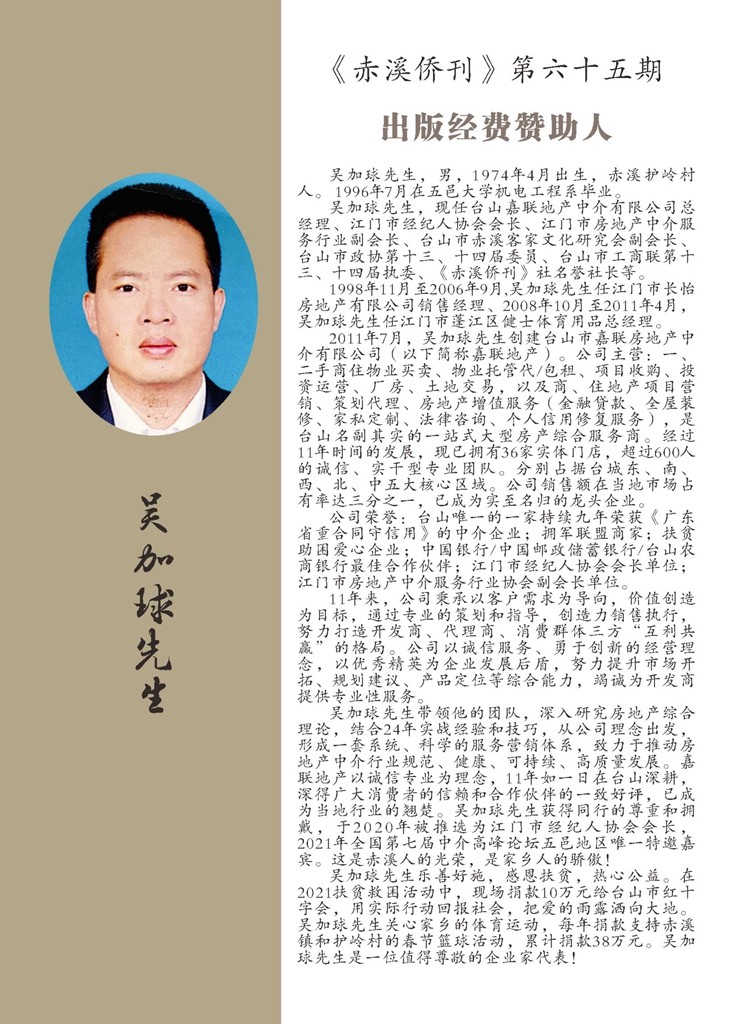 《赤溪侨刊》第六十五期
出版经费赞助人
吴加球先生，男，1974年4月出生，赤溪护岭村
人。1996年7月在五邑大学机电工程系毕业。
吴加球先生，现任台山嘉联地产中介有限公司总
经理、江门市经纪人协会会长、江门市房地产中介服
务行业副会长、台山市赤溪客家文化研究会副会长、
台山市政协第十三、十四届委员、台山市工商联第十
三、十四届执委、《赤溪侨刊》社名誉社长等。
1998年11月至2006年9月,吴加球先生任江门市长怡
房地产有限公司销售经理、2008年10月至2011年4月，
吴加球先生任江门市蓬江区健士体育用品总经理。
2011年7月，吴加球先生创建台山市嘉联房地产中
介有限公司（以下简称嘉联地产）。公司主营：一、
二手商住物业买卖、物业托管代/包租、项目收购、投
资运营、厂房、土地交易，以及商、住地产项目营
销、策划代理、房地产增值服务（金融贷款、全屋装
修、家私定制、法律咨询、个人信用修复服务），是
台山名副其实的一站式大型房产综合服务商。经过
11年时间的发展，现已拥有36家实体门店，超过600人
的诚信、实干型专业团队。分别占据台城东、南、
西、北、中五大核心区域。公司销售额在当地市场占
有率达三分之一，已成为实至名归的龙头企业。
公司荣誉：台山唯一的一家持续九年荣获《广东
省重合同守信用》的中介企业；拥军联盟商家；扶贫
助困爱心企业；中国银行/中国邮政储蓄银行/台山农
商银行最佳合作伙伴；江门市经纪人协会会长单位；
江门市房地产中介服务行业协会副会长单位。
11年来，公司秉承以客户需求为导向，价值创造
为目标，通过专业的策划和指导，创造力销售执行，
努力打造开发商、代理商、消费群体三方“互利共
赢”的格局。公司以诚信服务、勇于创新的经营理
念，以优秀精英为企业发展后盾，努力提升市场开
拓、规划建议、产品定位等综合能力，竭诚为开发商
提供专业性服务。
吴加球先生带领他的团队，深入研究房地产综合
理论，结合24年实战经验和技巧，从公司理念出发，
形成一套系统、科学的服务营销体系，致力于推动房
地产中介行业规范、健康、可持续、高质量发展。嘉
联地产以诚信专业为理念，11年如一日在台山深耕，
深得广大消费者的信赖和合作伙伴的一致好评，已成
为当地行业的翘楚。吴加球先生获得同行的尊重和拥
戴，于2020年被推选为江门市经纪人协会会长，
2021年全国第七届中介高峰论坛五邑地区唯一特邀嘉
宾。这是赤溪人的光荣，是家乡人的骄傲！
吴加球先生乐善好施，感恩扶贫，热心公益。在
2021扶贫救困活动中，现场捐款10万元给台山市红十
字会，用实际行动回报社会，把爱的雨露洒向大地。
吴加球先生关心家乡的体育运动，每年捐款支持赤溪
镇和护岭村的春节篮球活动，累计捐款38万元。吴加
球先生是一位值得尊敬的企业家代表！
吴加球先生